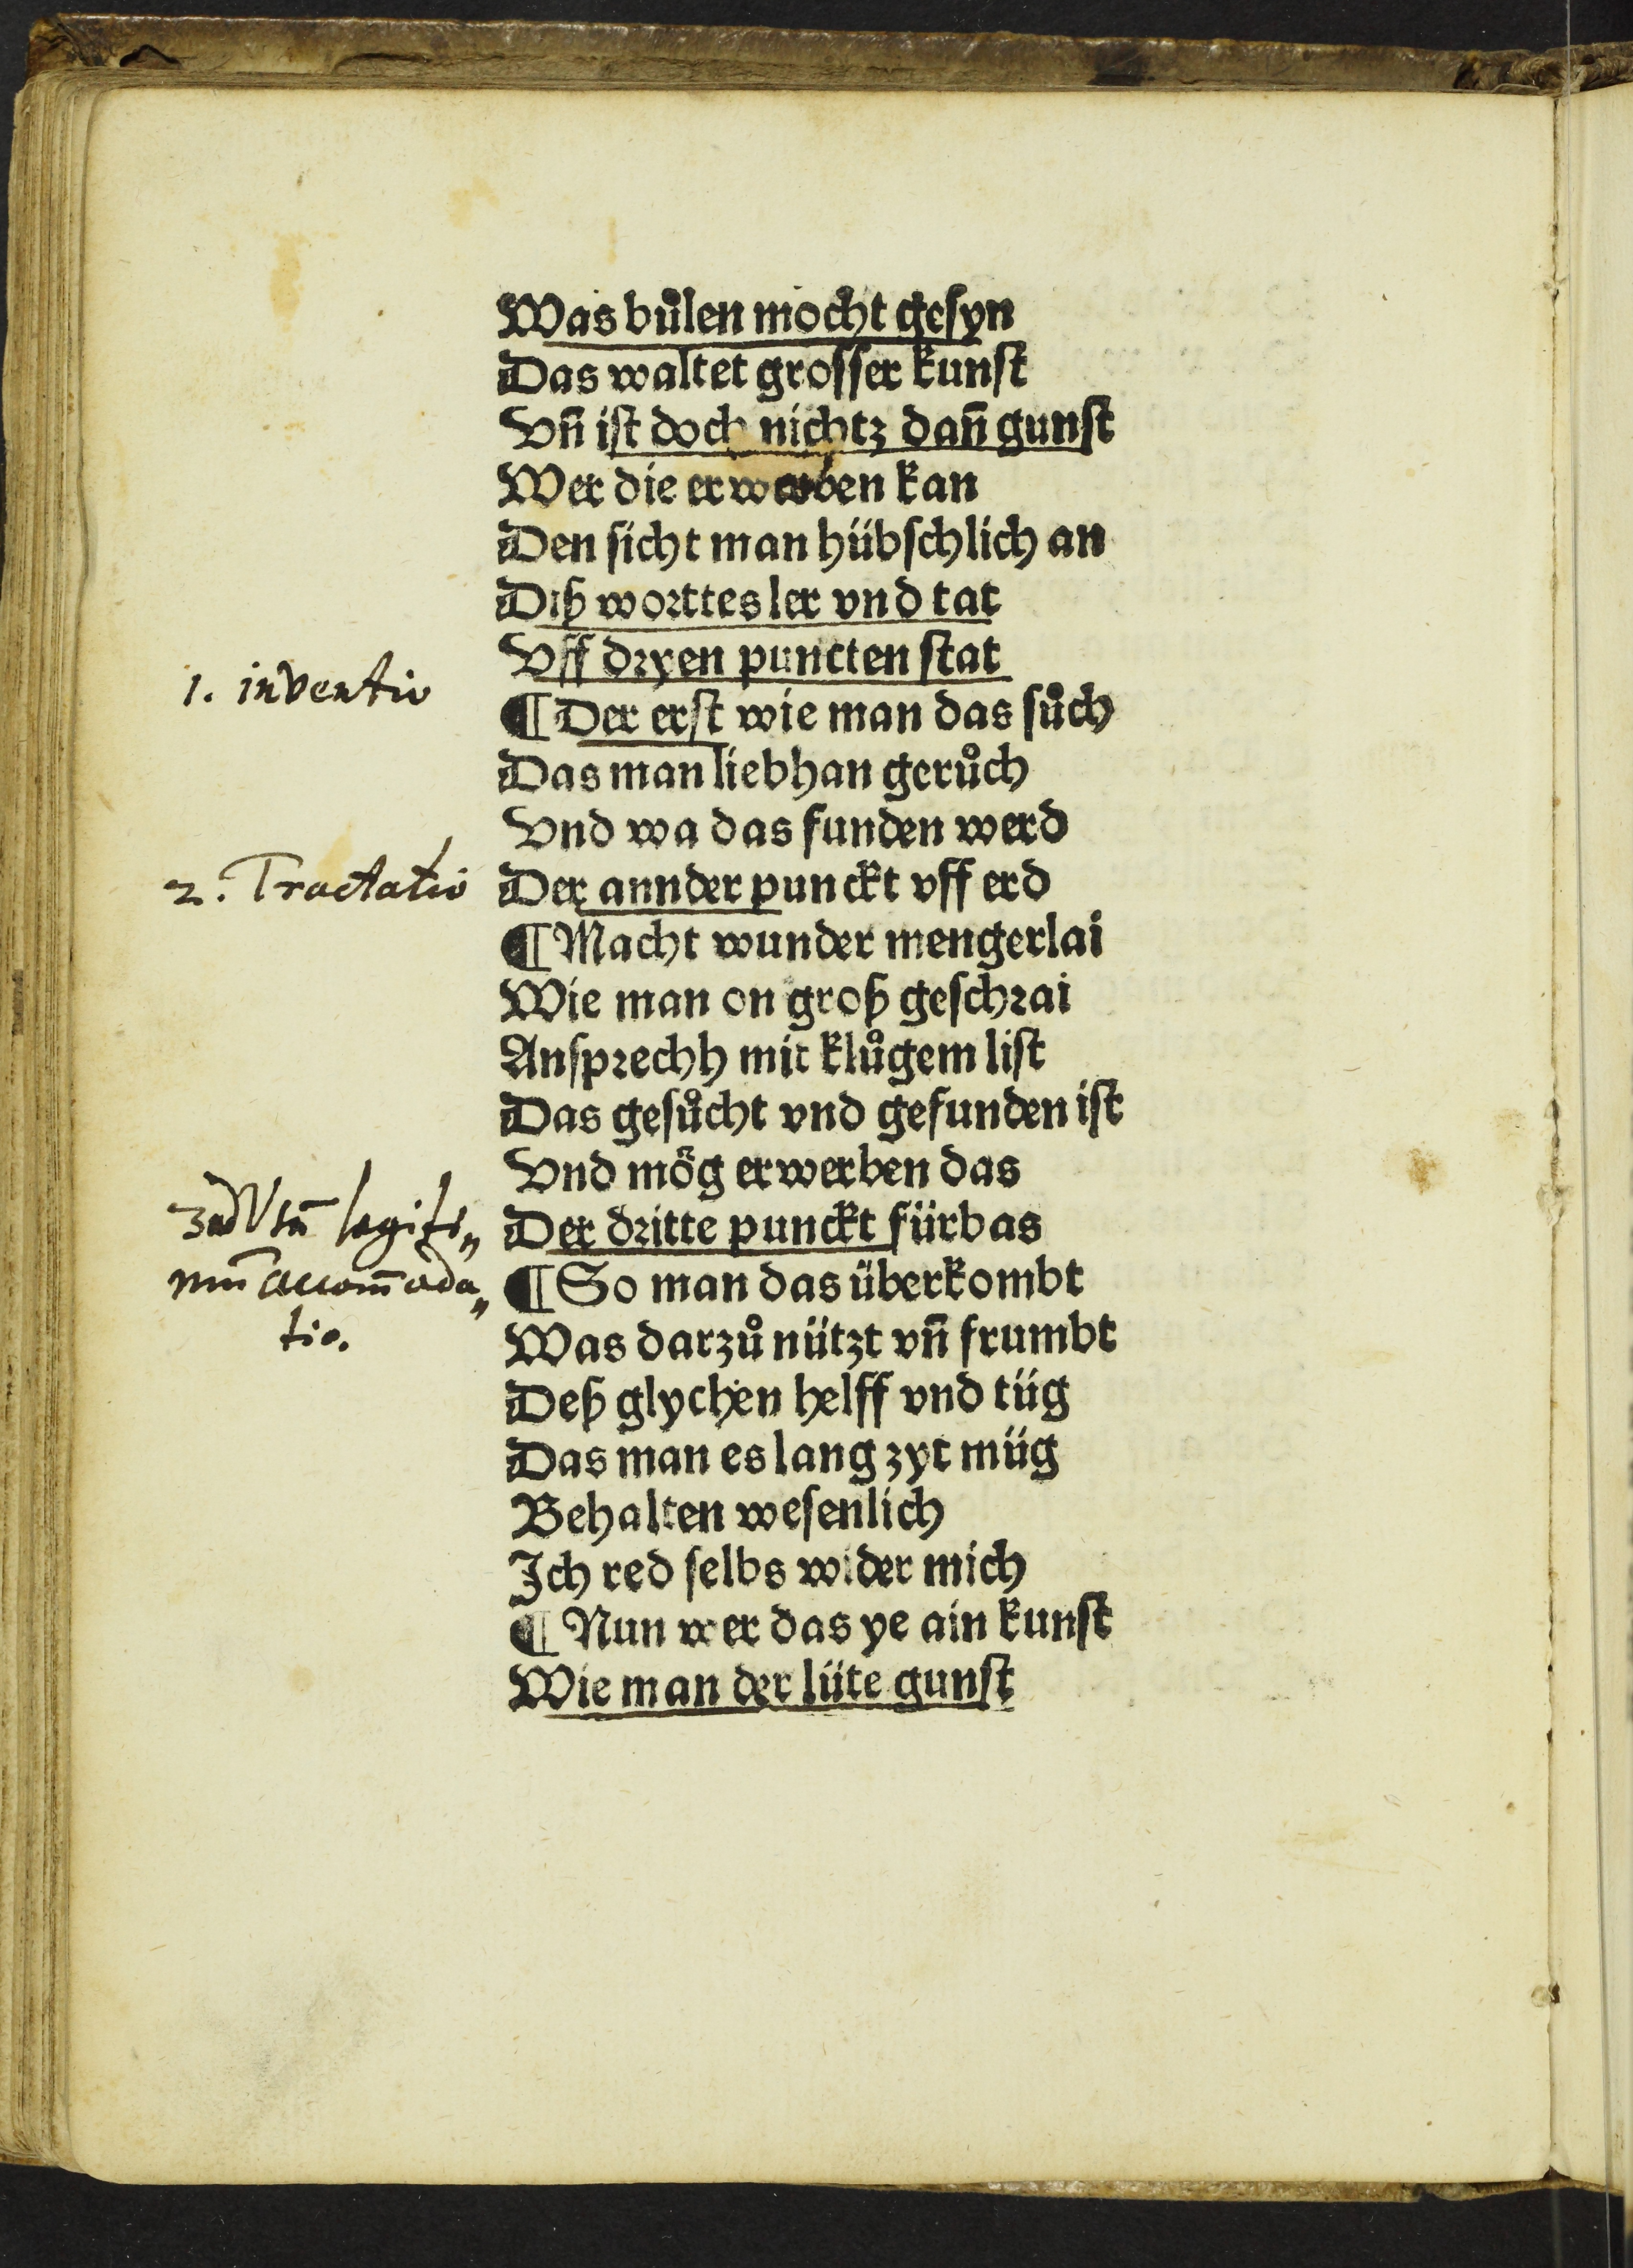 Was bůlen mocht gesyn
Das waltet grosser kunſt
Vn̄ iſt doch nichtz dan̄ gunſt
Wer die erwerben kan
Den ſicht man hübſchlich an
Diß worttes ler vnd tat
Vff dryen puncten ſtat
1. inventio
¶ Der erſt wie man das ſůch
Das man liebhan gerůch
Vnd wa das funden werd
2. Tractatio
Der annder punckt vff erd
¶ Macht wunder mengerlai
Wie man on groß geſchrai
Anſprechh mit klůgem liſt
Das geſůcht vnd gefunden iſt
Vnd mög erwerben das
3 ad Vsū legiti„
mū accom̄oda„
tio.
Der dritte punckt fürbas
¶ So man das überkombt
Was darzů nützt vn̄ frumbt
Deß glychen helff vnd tüg
Das man es lang zyt müg
Behalten weſenlich
Ich red ſelbs wider mich
¶ Nun wer das ye ain kunſt
Wie man der lüte gunſt